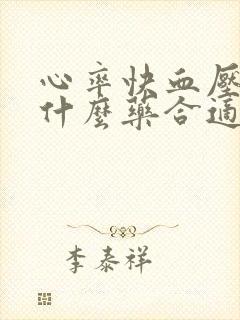 心率快血壓
什麼藥合適
李泰祥